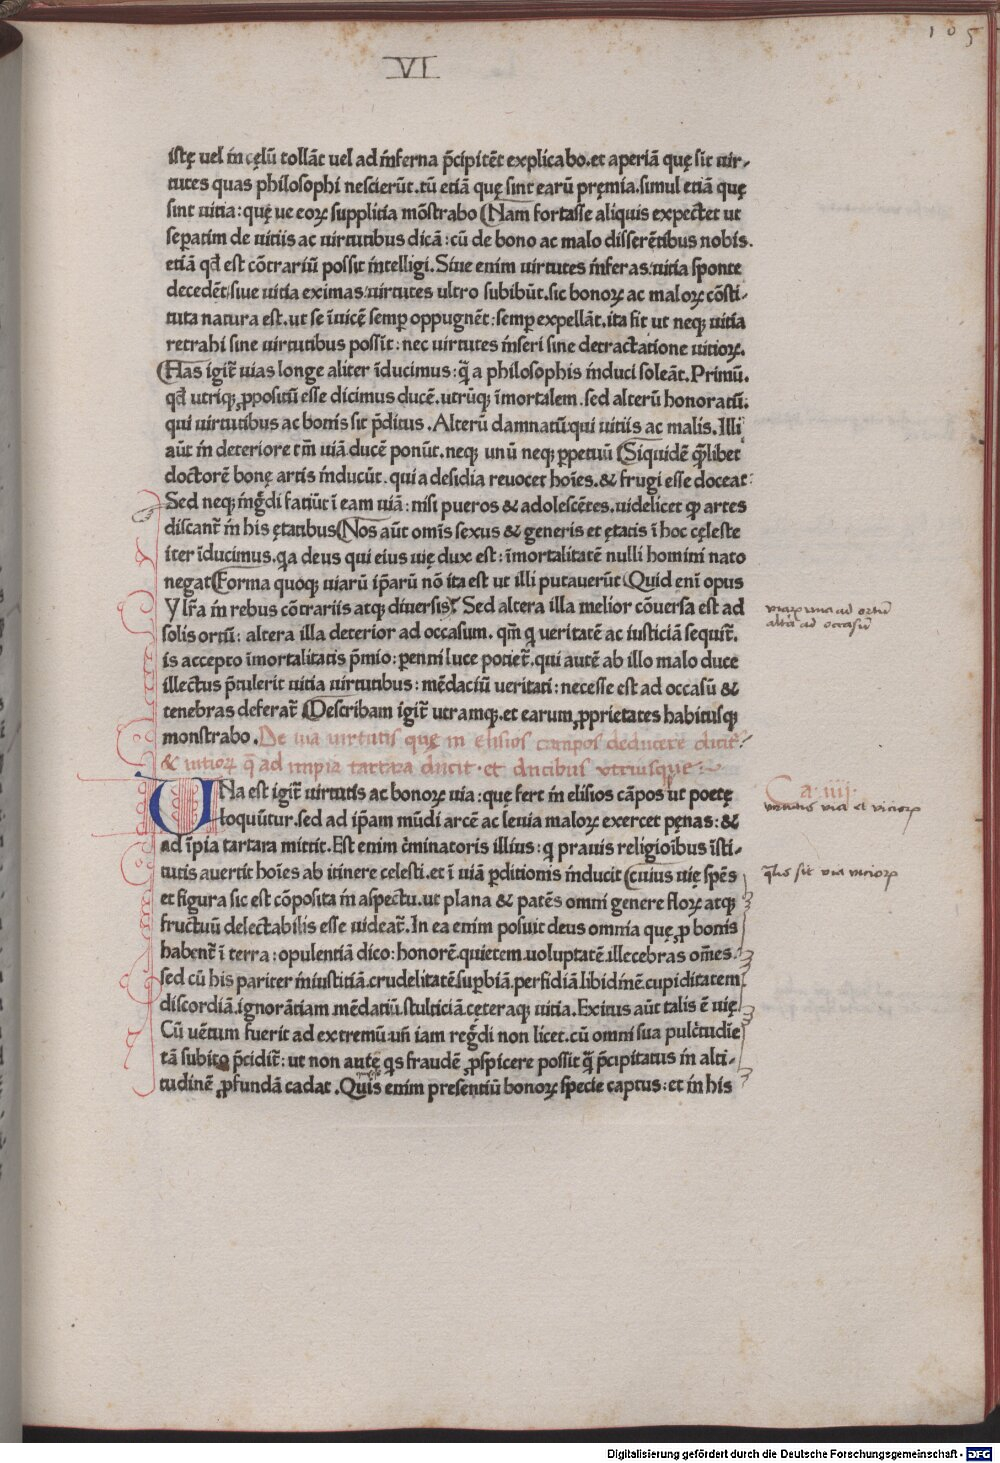 105
VI
istę uel in cęlū tollāt uel ad inferna p̄cipitēt explicabo.et aperiā quę sit uir-
tutes quas philosophi nescierūt.tū etiā quę sint earū pręmia.simul etiā quę
sint uitia: quę ue eoꝝ supplitia mōstrabo (Nam fortasse aliquis expectet ut
seꝑatim de uitiis ac uirtutibus dicā: cū de bono ac malo disserētibus nobis.
etiā qd̄ est cōtrariū possit intelligi. Siue enim uirtutes inferas:uitia sponte
decedēt:siue uitia eximas:uirtutes ultro subibūt.sic bonoꝝ ac maloꝝ cōsti-
tuta natura est.ut se īuicē semꝑ oppugnēt: semꝑ expellāt.ita fit ut neqꝫ uitia
retrahi sine uirtutibus possīt: nec uirtutes inseri sine detractatione uitioꝝ.
(Has igit̄ uias longe aliter īducimus: q̄ a philosophis induci soleāt. Primū.
qd̄ utriqꝫ ꝓpositū esse dicimus ducē.utrūqꝫ īmortalem. sed alterū honoratū:
qui uirtutibus ac bonis sit p̄ditus. Alterū damnatū:qui uitiis ac malis. Illi
aūt in deteriore tm̄ uiā ducē ponūt. neqꝫ unū neqꝫ ꝑpetuū (Siquidē q̄libet
doctorē bonę artis inducūt. qui a desidia reuocet hoīes.& frugi esse doceat:
Sed neqꝫ ingr̄di faciūt ī eam uiā: nisi pueros & adolescētes.uidelicet qꝫ artes
discant̄ in his ętatibus (Nos aūt omīs sexus & generis et ętatis ī hoc cęleste
iter īducimus.qa deus qui eius uię dux est: īmortalitatē nulli homini nato
negat (Forma quoqꝫ uiarū ip̄arū nō ita est ut illi putauerūt (Quid enī opus
Y lr̄a in rebus cōtrariis atqꝫ diuersis? Sed altera illa melior cōuersa est ad
solis ortū: altera illa deterior ad occasum. qm̄ q ueritatē ac iusticiā sequit̄.
is accepto īmortalitatis p̄mio: ꝑenni luce potiet̄.qui autē ab illo malo duce
illectus p̄tulerit uitia uirtutibus: mēdaciū ueritati: necesse est ad occasū &
tenebras deferat̄ (Describam igit̄ utramqꝫ.et earum ꝓprietates habitusqꝫ
monstrabo. De uia uirtutis quę in elisios campos deducere dicit̄
& uitioꝝ q̄ ad impia tartara ducit. et ducibus utriusque:
UNa est igit̄ uirtutis ac bonoꝝ uia: quę fert in elisios cāpos ut poetę
loquūtur.sed ad ip̄am mūdi arcē ac leuia maloꝝ exercet pęnas: &
ad īpia tartara mittit. Est enim c̄minatoris illius: q prauis religioībus īsti-
tutis auertit hoīes ab itinere celesti.et ī uiā ꝑditionis inducit (cuius uię spēs
et figura sic est cōposita in aspectu.ut plana & patēs omni genere floꝝ atqꝫ
fructuū delectabilis esse uideat̄. In ea enim posuit deus omnia quę ꝓ bonis
habent̄ ī terra: opulentiā dico: honorē.quietem.uoluptatē.illecebras om̄es.
sed cū his pariter iniustitiā.crudelitatē.suꝑbiā.perfidiā.libidinē.cupiditatem
discordiā.ignorātiam.mēdatiū.stulticiā.cęteraqꝫ uitia. Exitus aūt talis ē uię.
Cū uētum fuerit ad extremū:un̄ iam regr̄di non licet.cū omni sua pulc̄tudīe
tā subito p̄cidit̄: ut non aute qs fraudē ꝓspicere possit q̄ p̄cipitatus in alti-
tudinē ꝓfundā cadat. Quis enim presentiū bonoꝝ specie captus: et in his
viaꝝ una ad ortū
altera ad occasū
Ca. iiij.
virtutis via et vicioꝝ
q̄lis sit via vicioꝝ
Digitalisierung gefördert durch die Deutsche Forschungsgemeinschaft - DFG